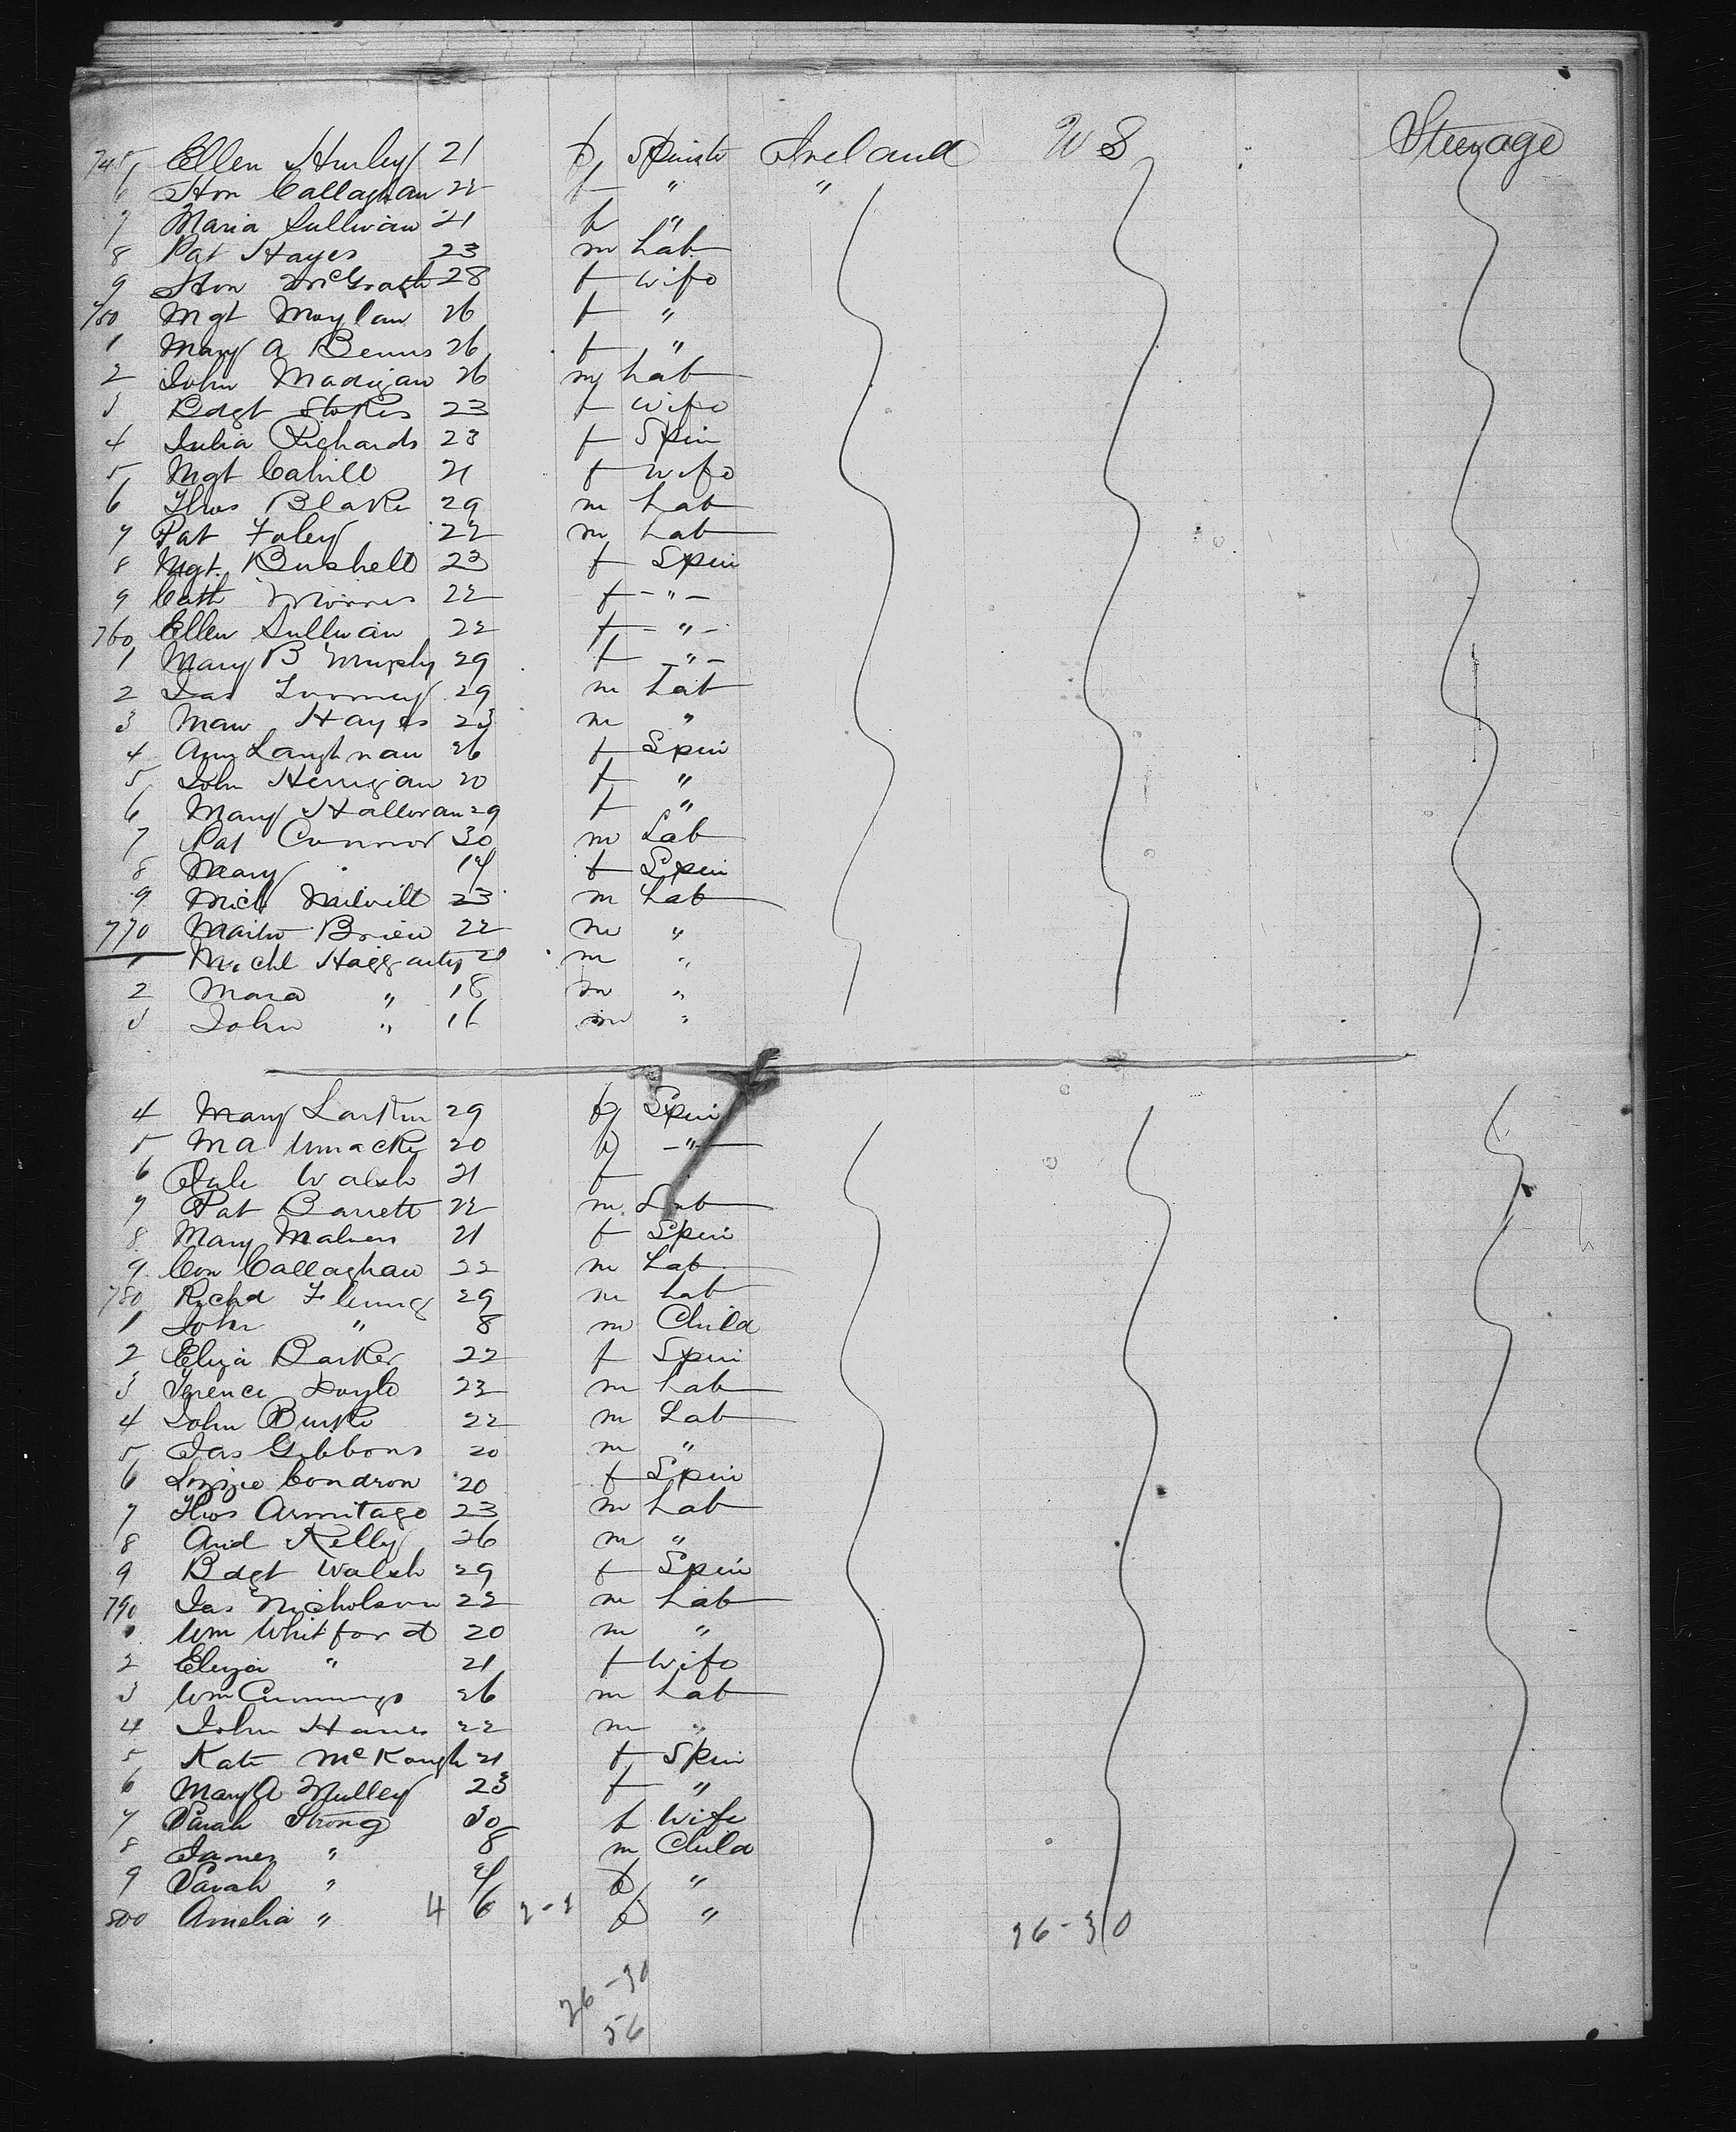 745 Ellen Hurley 21 f Spinstr Ireland U S Steerage
6 Hon Callaghan 22 f " "
7 Maria Sullivan 21 f "
8 Pat Hayes 23 m Lab
9 Hon McGrath 28 f Wife
750 Mgt Moylan 26 f "
1 Mary A 26 f "
2 John Madigan 26 m Lab
3 Bdgt Stokes 23 f Wife
4 Julia Richards 23 f Spin
5 Mgt Cahill 21 f Wife
6 Thos Blake 29 m Lab
7 Pat Foley 22 m Lab
8 Mgt. Bushell 23 f Spin
9 Cath Morris 22 f - " -
760 Ellen Sullivan 22 f - " -
1 Mary B Murphy 29 f - " -
2 Jas 29 m Lab
3 Hayes 23 m "
4 Ann Laughnan 26 f Spin
5 John Herrigan 20 f "
6 Mary Halloran 29 f "
7 Pat Connor 30 m Lab
8 Mary " f Spin
9 Mich 23 m Lab
770 Brien 22 m "
1 Michl Haggarty 20 m "
2 " 18 m "
3 John " 16 m "
4 Mary Larkin 29 f Spin
5 M A 20 f - " -
6 Walsh 21 f
7 Pat Barrett 22 m Lab
8 Mary 21 f Spin
9 Con Callaghan 22 m Lab
780 Richd Fleming 29 m Lab
1 John " 8 m Child
2 Eliza Barker 22 f Spin
3 Terence Doyle 22 m Lab
4 John Burke 22 m Lab
5 Jas Gibbons 20 m "
6 Lizzie Condron 20 f Spin
7 Thos Armitage 23 m Lab
8 And Kelly 26 m "
9 Bdgt Walsh 29 f Spin
790 Jas Nicholson 22 m Lab
1 Wm Whitford 20 m "
2 Eliza " 21 f Wife
3 Wm Cummings 26 m Lab
4 John 22 m "
5 Kate McKough 21 f Spin
6 Mary A 23 f "
7 Sarah Strong 30 f Wife
8 James " 8 m Child
9 Sarah " f "
800 Amelia " 4 6 f "
26-30
26-30
56